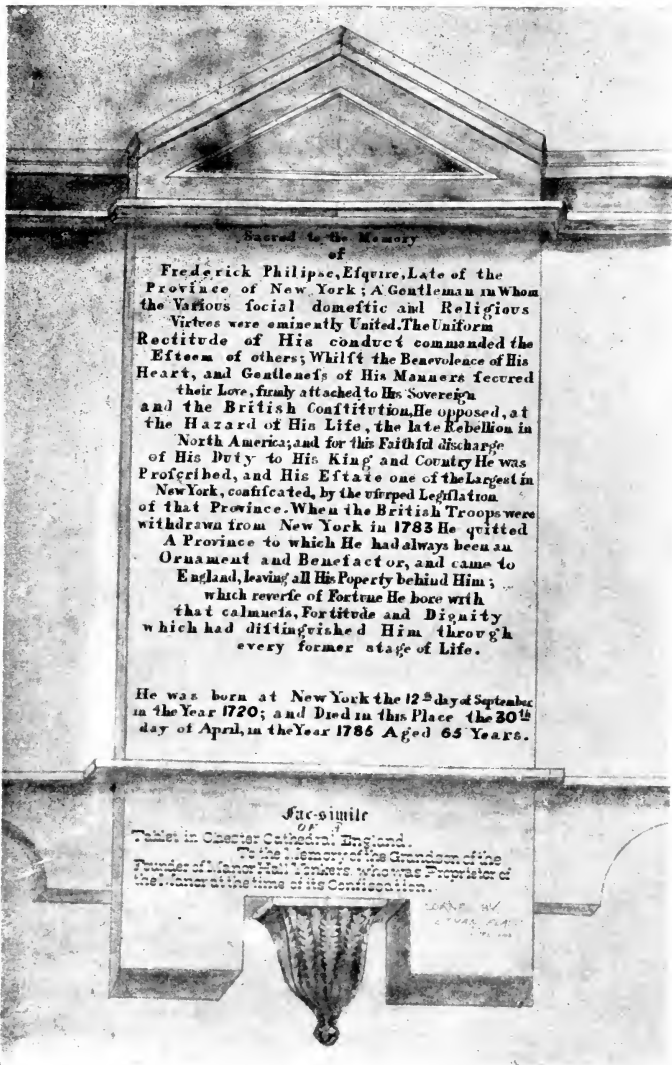 Sacred to the Memory
of
Frederick Philipse, Eſquire, Late of the
Province of New York; A Gentleman in Whom
the Various ſocial domeſtic and Religious
Virtues were eminently United. The Uniform
Rectitude of His conduct commanded the
Eſteem of others; Whilſt the Benevolence of His
Heart, and Gentleneſs of His Manners ſecured
their Love, firmly attached to His Sovereign
and the British Conſtitution, He opposed, at
the Hazard of His Life, the late Rebellion in
North America; and for this Faithful discharge
of His Duty to His King and Country He was
Proſcribed, and His Eſtate one of the Largest in
New York, confiſcated, by the uſurped Legiſlation
of that Province. When the British Troops were
withdrawn from New York in 1783 He quitted
A Province to which He had always been an
Ornament and Benefactor, and came to
England, leaving all His Poperty behind Him;
which reverſe of Fortune He bore with
that calmneſs, Fortitude and Dignity
which had diſtinguished Him through
every former stage of Life.
He was born at New York the 12th day of September
in the Year 1720; and Died in this Place the 30th
day of April, in the Year 1785 Aged 65 Years.
Fac-simile
OF A
Tablet in Chester Cathedral England.
To the Memory of the Grandson of the
Founder of Manor Hall Yonkers, who was Proprietor of
the Manor at the time of its Confiscation.
BY